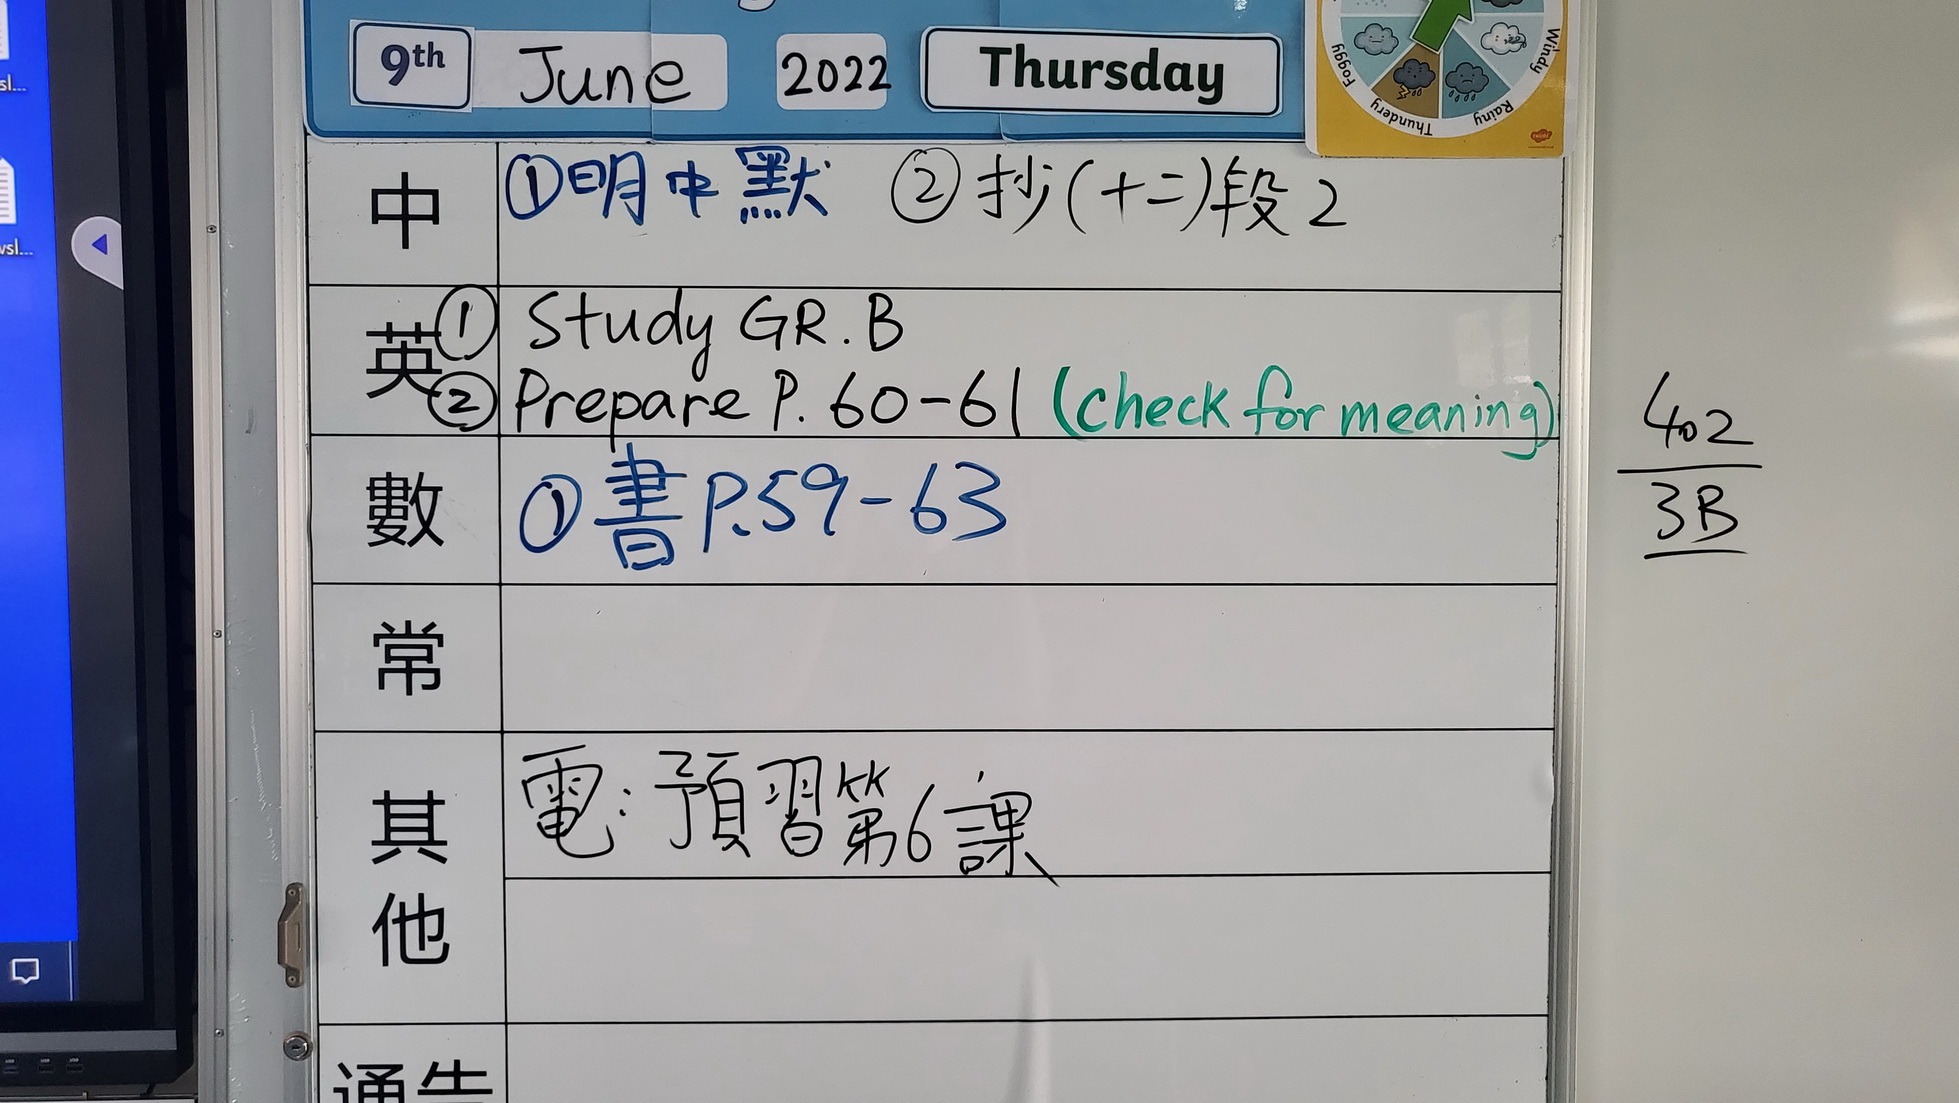 9th June 2022 Thursday
Foggy Thundery Rainy Windy
中 ①明中默 ②抄(十二)段2
英 ① Study GR. B
② Prepare P. 60-61 (check for meaning)
數 ①書P.59-63
常
其他 電:預習第6課
通告
402
3B